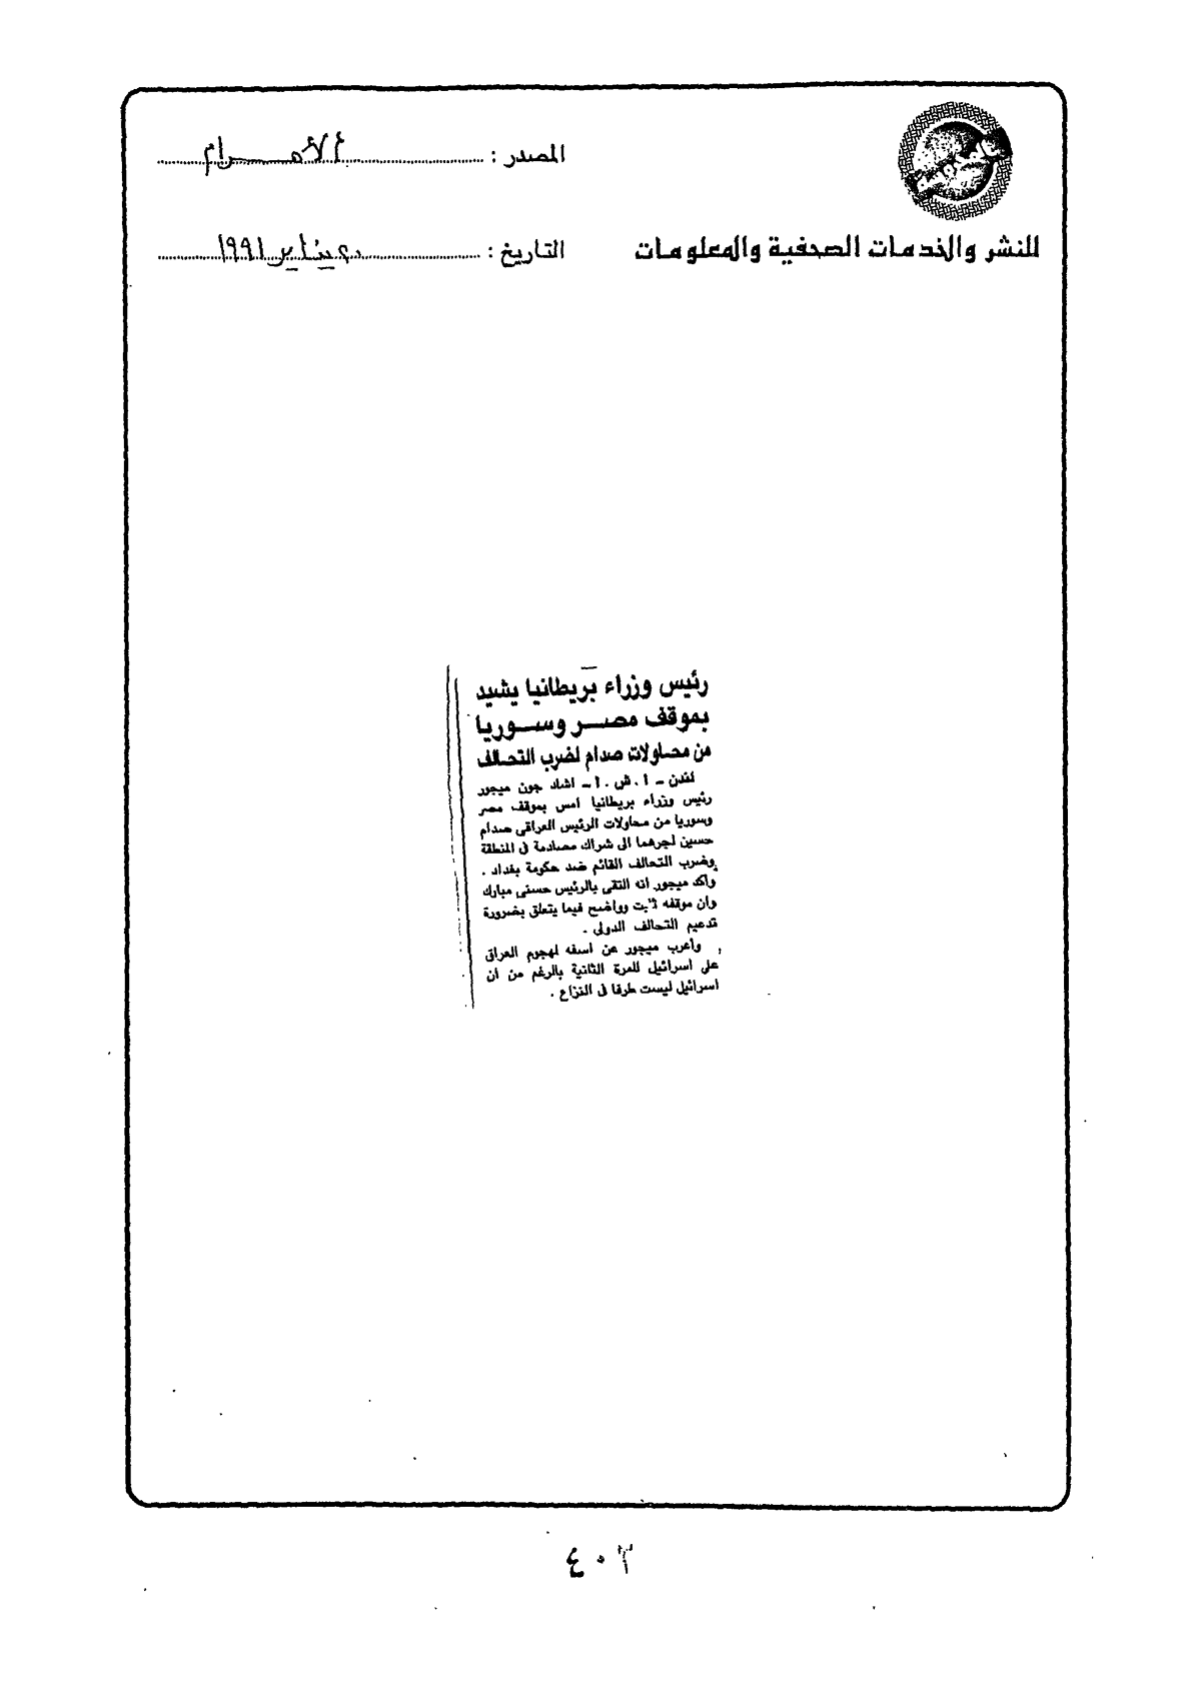 المصدر : الأهـــرام
للنشر والخدمات الصحفية والمعلومات
التاريخ : ٢٠ يناير ١٩٩١
رئيس وزراء بريطانيا يشيد
بموقف مصـــر وســـوريا
من محاولات صدام لضرب التحالف
لندن - ا . ش . ا - اشاد جون ميجور
رئيس وزراء بريطانيا امس بموقف مصر
وسوريا من محاولات الرئيس العراقى صدام
حسين لجرهما الى شراك مصادمة فى المنطقة
وضرب التحالف القائم ضد حكومة بغداد .
واكد ميجور انه التقى بالرئيس حسنى مبارك
وان موقفه ثابت وواضح فيما يتعلق بضرورة
تدعيم التحالف الدولى .
وأعرب ميجور عن اسفه لهجوم العراق
على اسرائيل للمرة الثانية بالرغم من ان
اسرائيل ليست طرفا فى النزاع .